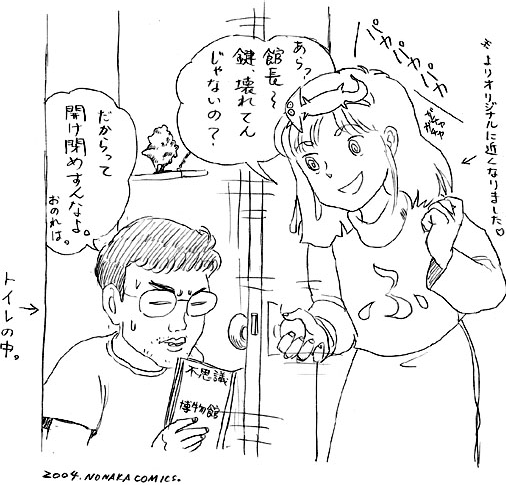 ※よりオリジナルに近くなりました♡
パカパカパカ
ガチャ
ガチャ
あらっ?
館長〜
鍵、壊れてん
じゃないの?
だからって
開け閉めすんなよ。
おのれは。
ふ
不思議
博物館
トイレの中。
2004. NONAKA COMICS.